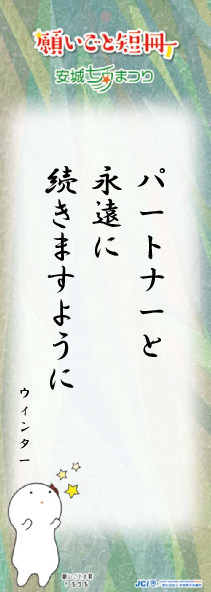 願いごと短冊
安城七夕まつり
パートナーと
永遠に
続きますように
ウィンター
JCI